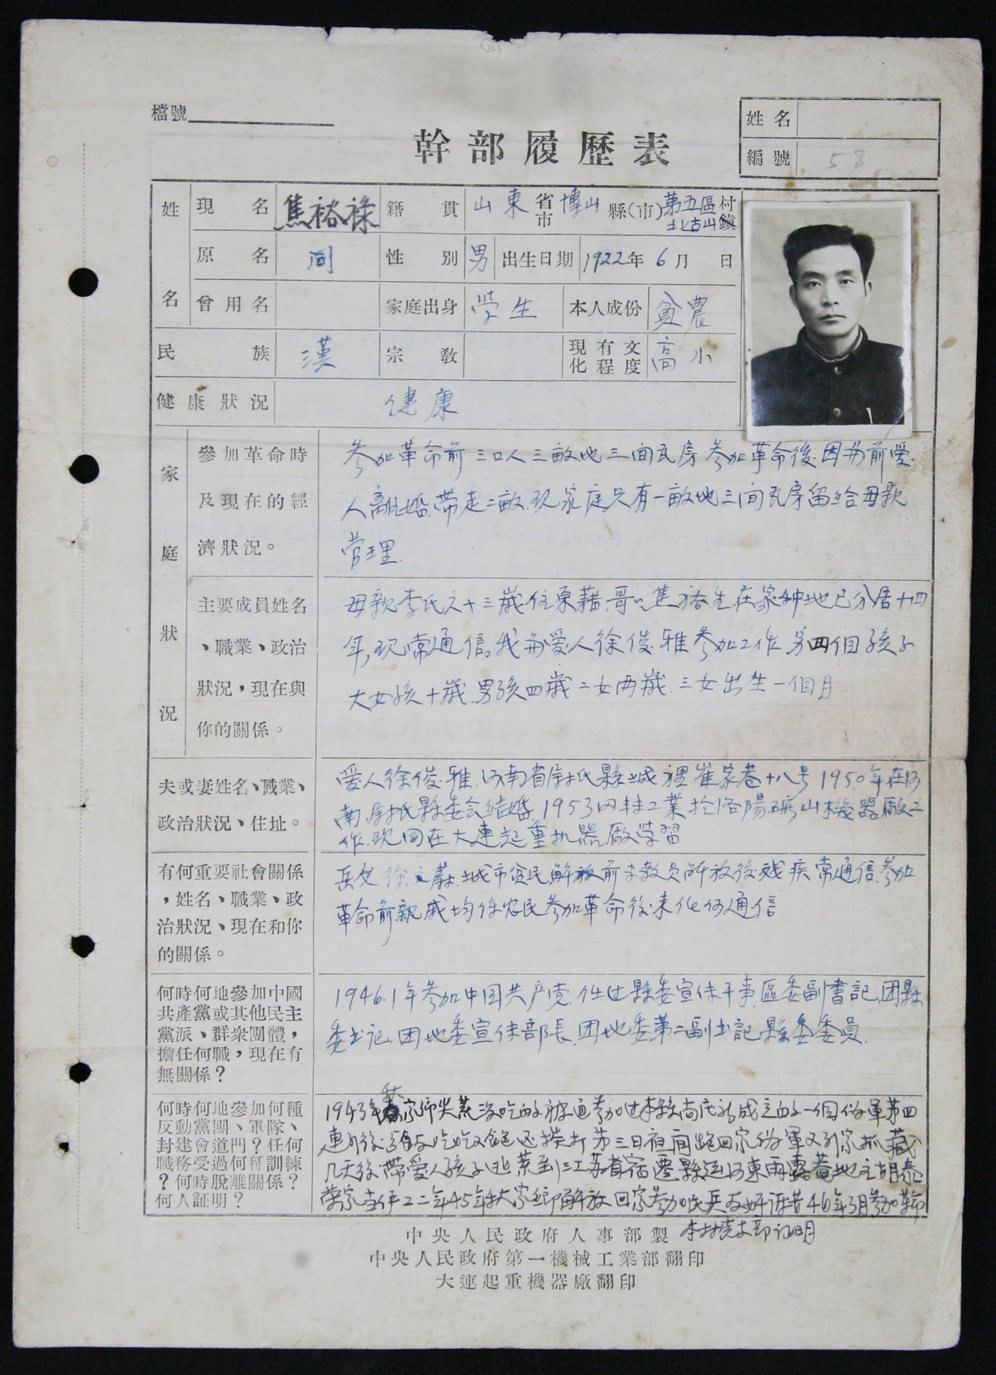 檔號
幹部履歷表
姓名
編號 58
姓名 現名 焦裕祿 籍貫 山東省市 博山縣(市) 第五區北崮山村鎮
原名 同 性別 男 出生日期 1922年6月 日
曾用名 家庭出身 學生 本人成份 貧農
民族 漢 宗教 現有文化程度 高小
健康狀況 健康
家庭狀況
參加革命時及現在的經濟狀況。
参加革命前三口人三畝地三间瓦房参加革命後因前爱
人離婚带走二畝.现家庭只有一畝地三间瓦房留给母親
管理.
主要成員姓名、職業、政治狀況,現在與你的關係。
母親李氏六十三歲住東藉.哥哥焦裕生在家种地已分居十四
年,现常通信,我爱人徐俊雅参加工作.另四個孩子
大女孩十歲.男孩四歲二女两歲.三女出生一個月
夫或妻姓名、職業、政治狀況、住址。
爱人徐俊雅.河南省尉氏縣城裡崔家巷十八号1950年在河
南尉氏縣委会结婚.1953因轉工業於洛陽礦山機器廠工
作.现同在大連起重机器廠学習
有何重要社會關係,姓名、職業、政治狀況、現在和你的關係。
岳父徐 蔚.城市贫民解放前 教員解放後残疾常通信.参加
革命前親戚均係农民参加革命後未 何通信
何時何地參加中國共產黨或其他民主黨派、群衆團體,擔任何職,現在有無關係?
1946.1年参加中国共产党.任 縣委宣传干事.區委副書記.团縣
委书记.团地委宣传部長.团地委第二副书記.縣委委員.
何時何地參加何種反動黨團、軍隊、封建會道門?任何職務受過何種訓練?何時脫離關係?何人証明?
1943年 家 没吃的.被逼参加过本 成立的一個伪軍第四
連 後 第三日夜间跑回家伪軍又到家抓 藏
几天後带爱人孩子 到江苏省宿遷縣 河東 地主胡泰
榮家 工二年45年 家 解放回家参加民兵 46年3月参加革命
本村党支部证明
中央人民政府人事部製
中央人民政府第一機械工業部翻印
大連起重機器廠翻印